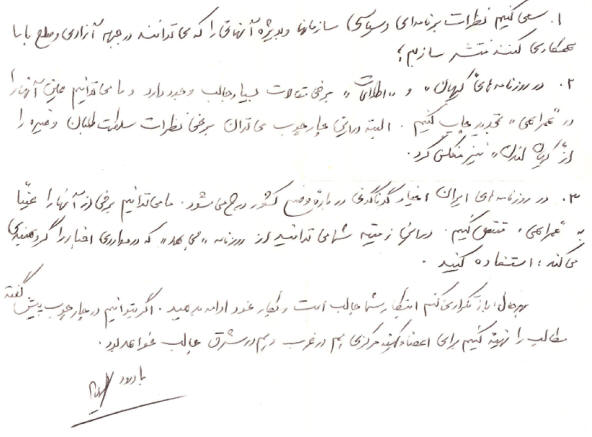 ۱. سعی کنیم نظرات برنامه‌ای و سیاسی سازمانها و بویژه آنهائی را که می‌توانند در جبهه آزادی و صلح با ما
همکاری کنند منتشر سازیم؛
۲. در روزنامه‌های "کیهان" و "اطلاعات" برخی مقالات بسیار جالب وجود دارد و ما می‌توانیم آنها را
در تجدید چاپ کنیم. البته در این چارچوب می‌توان برخی نظرات سلطنت طلبان و غیره را
از "کیهان لندن" نیز منعکس کرد.
۳. در روزنامه‌های ایران اخبار گوناگونی در بارهٔ وضع کشور درج می‌شود. ما می‌توانیم برخی از آنها را عیناً
به منتقل کنیم. در این زمینه شما می‌توانید از روزنامه که مواردی اخبار را گروهبندی
می‌کند، استفاده کنید.
بهرحال باز تکرار می‌کنم ابتکار شما جالب است و بکار خود ادامه بدهید. اگر بتوانیم در چارچوب پیش گفته
مطالب را تهیه کنیم برای اعضاء کمیته مرکزی هم در غرب و هم در شرق جالب خواهد بود.
با درود